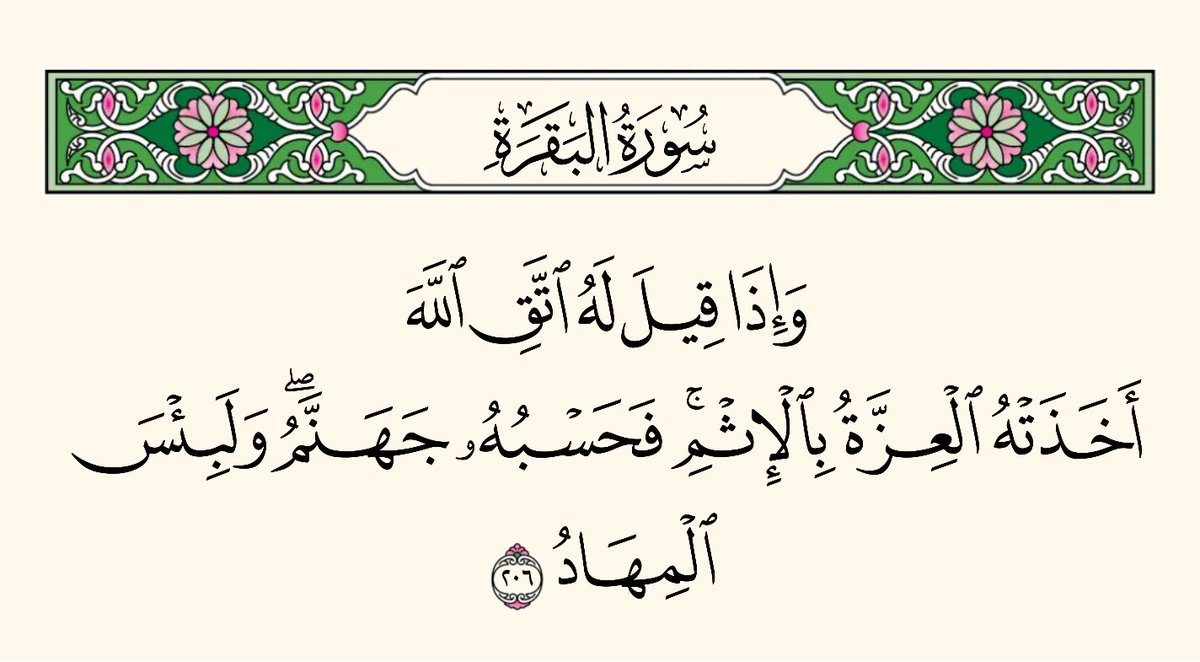 سُورَةُ البَقَرَةِ
وَإِذَا قِيلَ لَهُ ٱتَّقِ ٱللَّهَ
أَخَذَتۡهُ ٱلۡعِزَّةُ بِٱلۡإِثۡمِۚ فَحَسۡبُهُۥ جَهَنَّمُۖ وَلَبِئۡسَ
ٱلۡمِهَادُ ٢٠٦